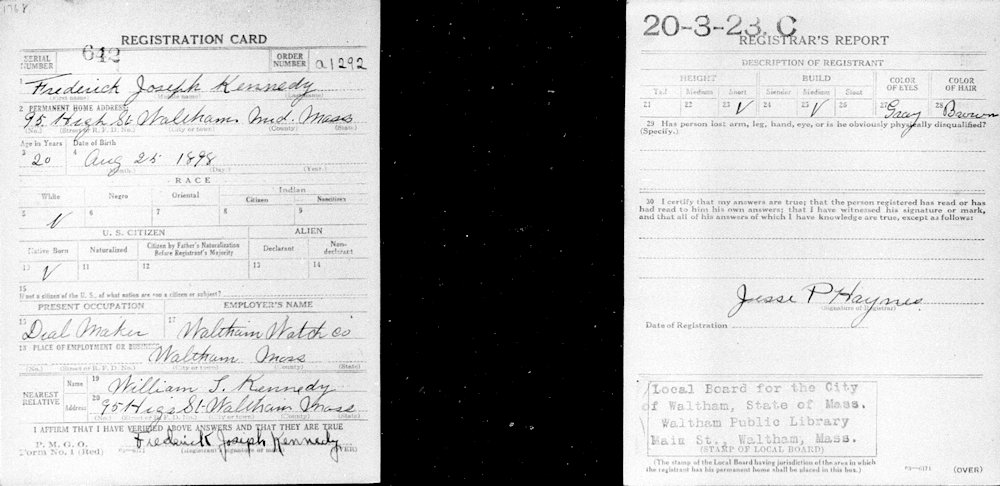 1768
REGISTRATION CARD
SERIAL NUMBER 642 ORDER NUMBER a1292
1 Frederick Joseph Kennedy
(First name) (Middle name) (Last name)
2 PERMANENT HOME ADDRESS:
95 High St Waltham Mid. Mass
(No.) (Street or R. F. D. No.) (City or town) (County) (State)
Age in Years Date of Birth
3 20 4 Aug 25 1898
(Month.) (Day.) (Year.)
RACE
White Negro Oriental Indian
Citizen Noncitizen
5 V 6 7 8 9
U. S. CITIZEN ALIEN
Native Born Naturalized Citizen by Father's Naturalization Before Registrant's Majority Declarant Non-declarant
10 V 11 12 13 14
15
If not a citizen of the U. S., of what nation are you a citizen or subject?
PRESENT OCCUPATION EMPLOYER'S NAME
16 Dial Maker 17 Waltham Watch Co
18 PLACE OF EMPLOYMENT OR BUSINESS
Waltham Mass
(No.) (Street or R. F. D. No.) (City or town) (County) (State)
NEAREST RELATIVE Name 19 William J. Kennedy
Address 20 95 Higs St Waltham Mass
(No.) (Street or R. F. D. No.) (City or town) (County) (State)
I AFFIRM THAT I HAVE VERIFIED ABOVE ANSWERS AND THAT THEY ARE TRUE
P. M. G. O.
Form No. 1 (Red) Frederick Joseph Kennedy
(Registrant's signature or mark) (OVER)
20-3-23. C
REGISTRAR'S REPORT
DESCRIPTION OF REGISTRANT
HEIGHT BUILD COLOR OF EYES COLOR OF HAIR
Tall Medium Short Slender Medium Stout
21 22 23 V 24 25 V 26 27 Gray 28 Brown
29 Has person lost arm, leg, hand, eye, or is he obviously physically disqualified?
(Specify.)
30 I certify that my answers are true; that the person registered has read or has
had read to him his own answers; that I have witnessed his signature or mark,
and that all of his answers of which I have knowledge are true, except as follows:
Jesse P Haynes
(Signature of Registrar)
Date of Registration
Local Board for the City
of Waltham, State of Mass.
Waltham Public Library
Main St., Waltham, Mass.
(STAMP OF LOCAL BOARD)
(The stamp of the Local Board having jurisdiction of the area in which
the registrant has his permanent home shall be placed in this box.)
03—6171 (OVER)